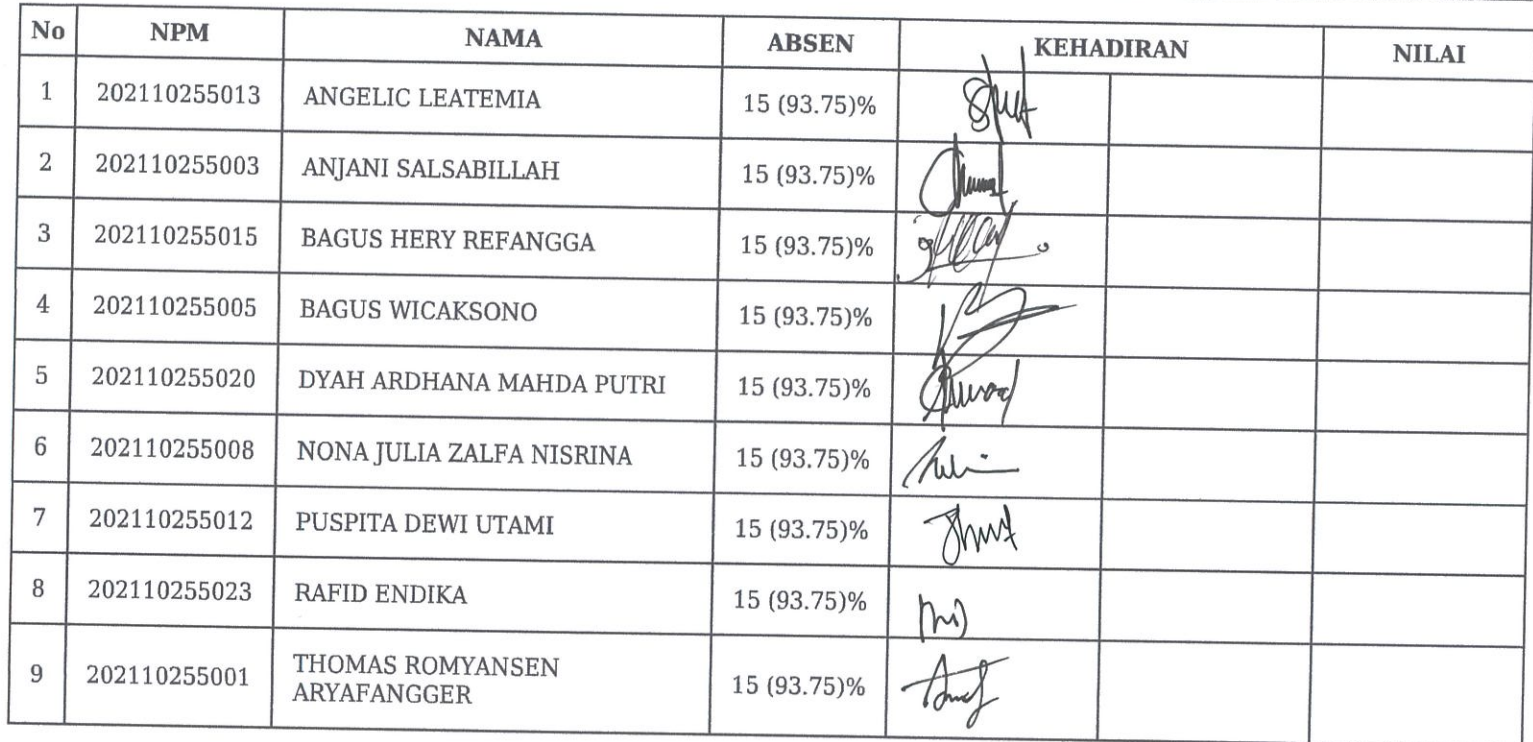 No NPM NAMA ABSEN KEHADIRAN NILAI
1 202110255013 ANGELIC LEATEMIA 15 (93.75)%
2 202110255003 ANJANI SALSABILLAH 15 (93.75)%
3 202110255015 BAGUS HERY REFANGGA 15 (93.75)%
4 202110255005 BAGUS WICAKSONO 15 (93.75)%
5 202110255020 DYAH ARDHANA MAHDA PUTRI 15 (93.75)%
6 202110255008 NONA JULIA ZALFA NISRINA 15 (93.75)%
7 202110255012 PUSPITA DEWI UTAMI 15 (93.75)%
8 202110255023 RAFID ENDIKA 15 (93.75)%
9 202110255001 THOMAS ROMYANSEN
ARYAFANGGER 15 (93.75)%